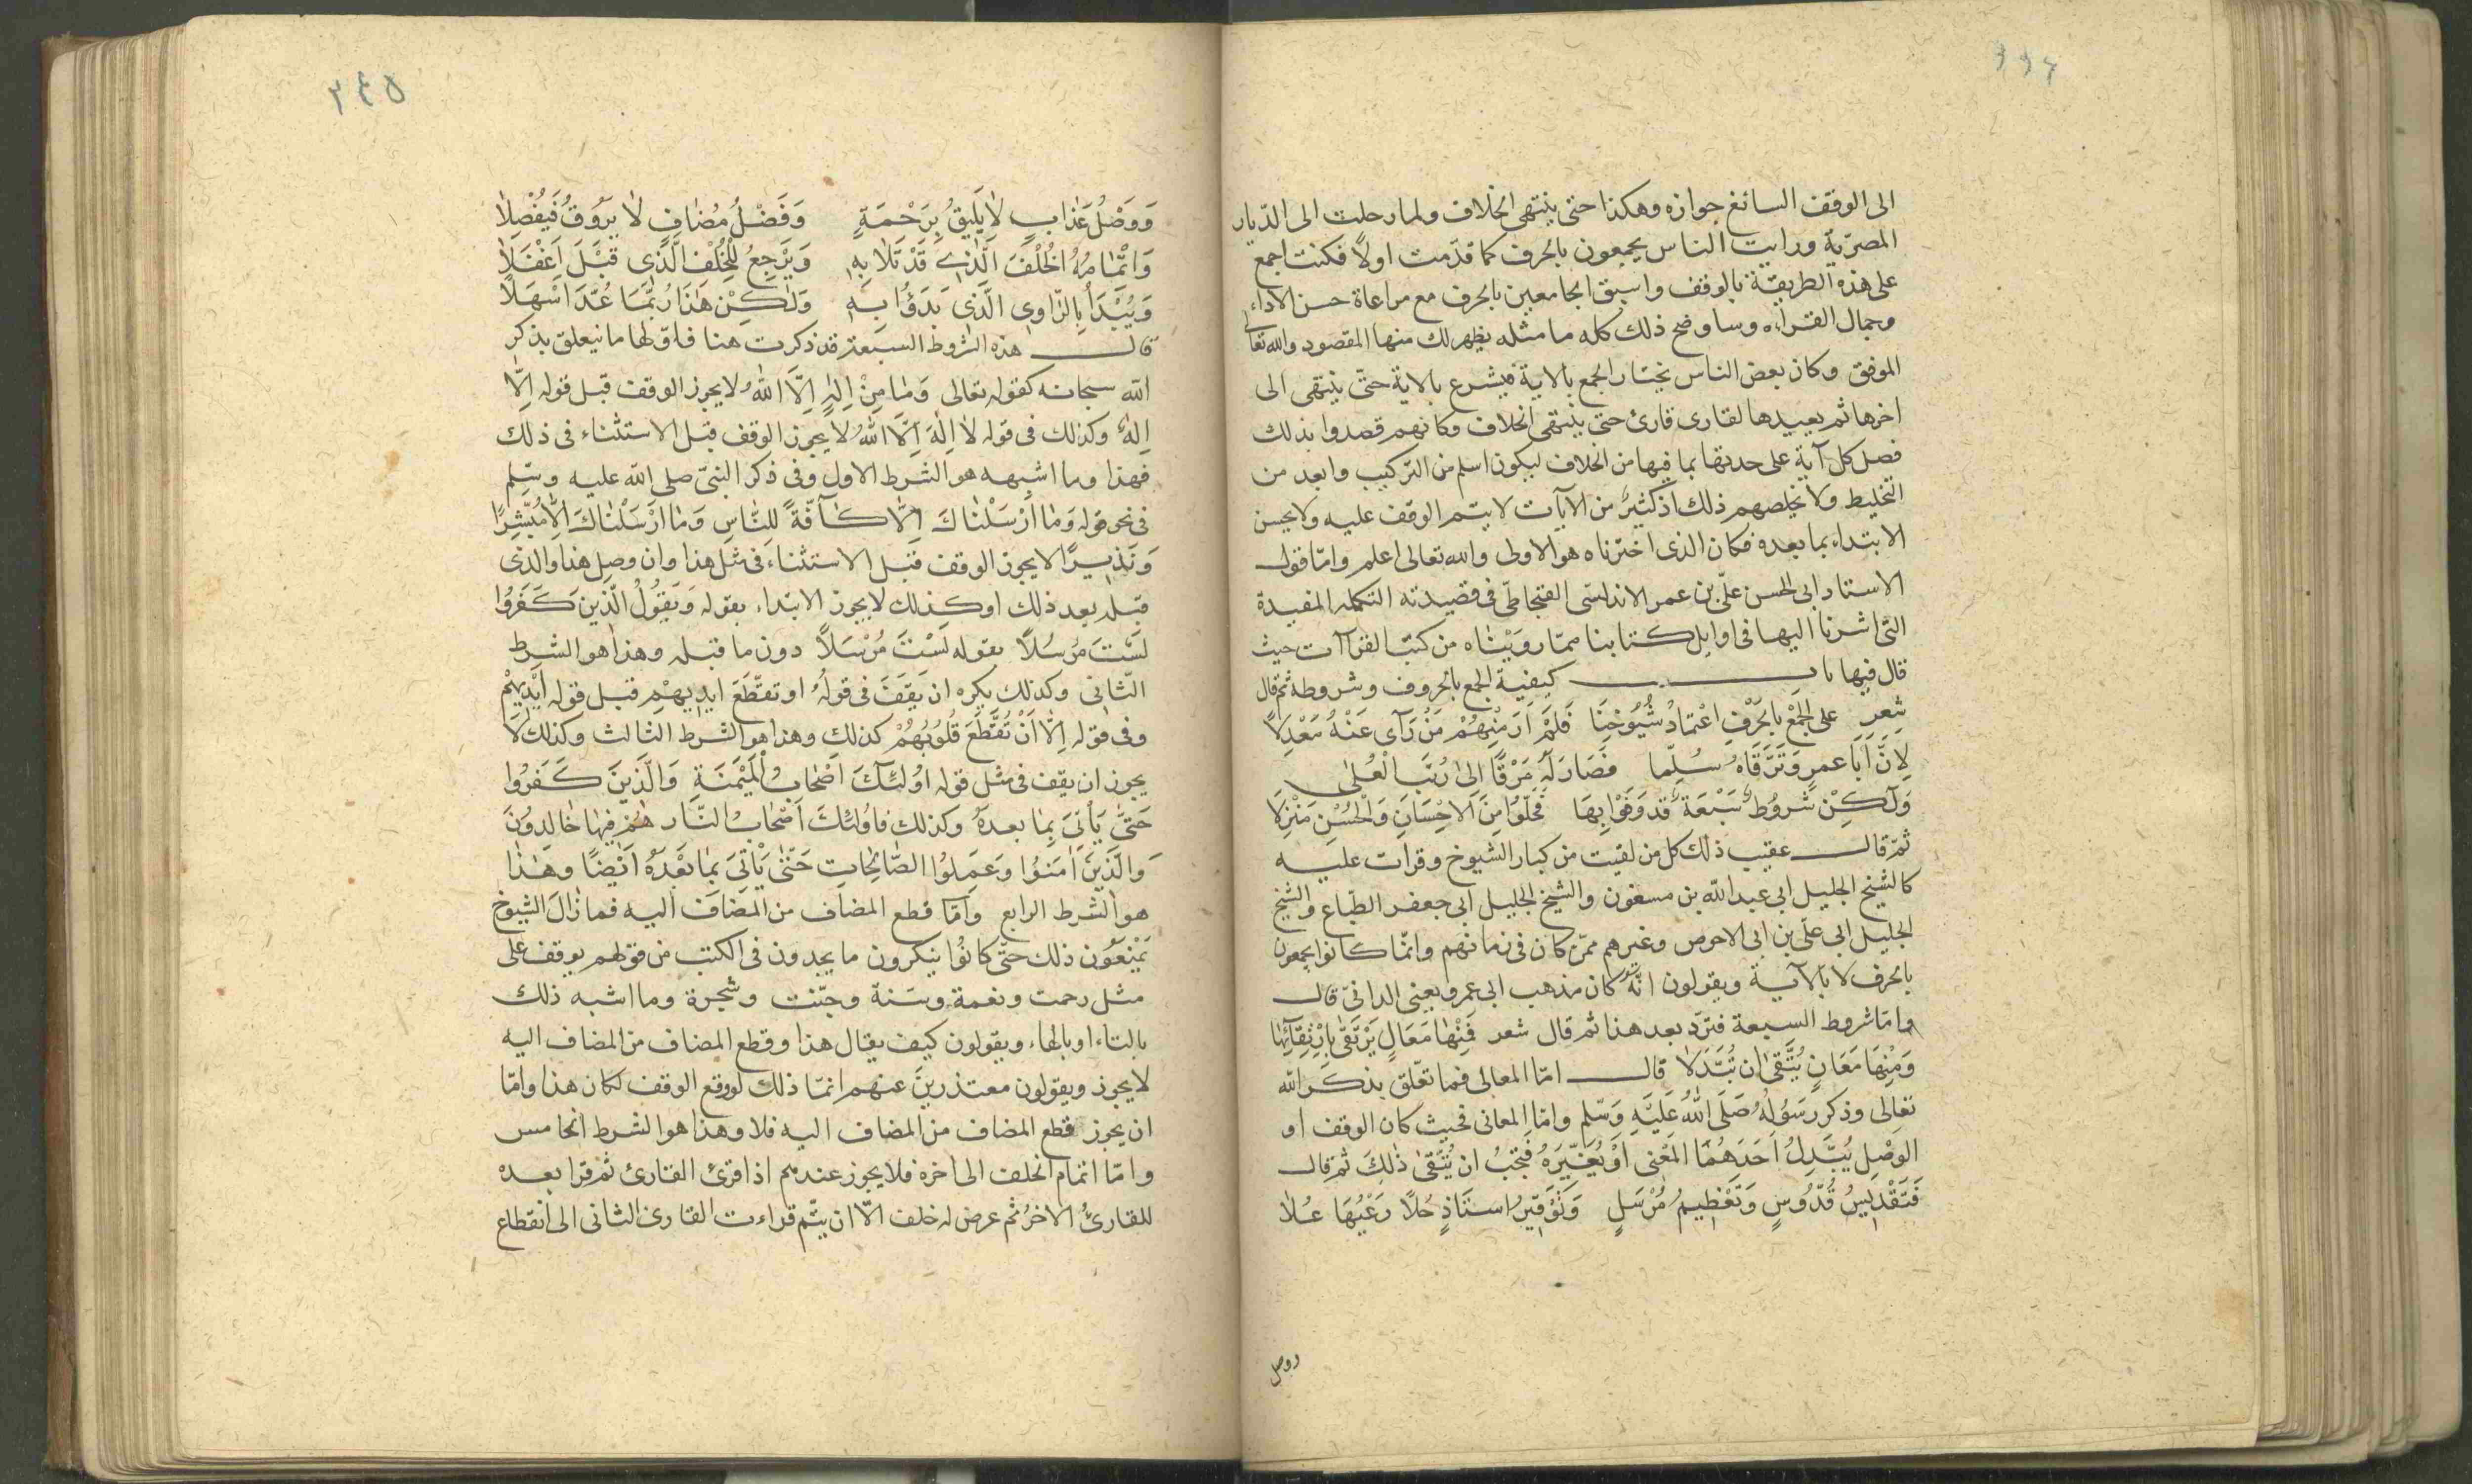 الى الوقف السائغ جوازه وهكذا حتى ينتهى الخلاف ولما رحلت الى الدّيار
المصرّية ورايت الناس يجمعون بالحرف كما قدّمت اولاً فكنت اجمع
على هذه الطريقة بالوقف واسبق الجامعين بالحرف مع مراعاة حسن الاداء
وجمال القراءه وساوضح ذلك كله مامثله يظهر لك منها المقصود والله تعالى
الموفق وكان بعض الناس يختار الجمع بالاية فيشرع بالاية حتى ينتهى الى
اخرها ثم يعيدها لقارى قارئ حتى ينتهى الخلاف وكانهم قصدوا بذلك
فصل كل آية على حدتها بما فيها من الخلاف ليكون اسلم من التركيب وابعد من
التخليط ولا يخلصهم ذلك اذ كثيرٌ من الايآت لا يتم الوقف عليه ولا يحسن
الابتداء بما بعده فكان الذى اخترناه هو الاولى والله تعالى اعلم وامّا قول
الاستاد ابى الحسن علىّ بن عمر الاندلسّى القنجاطىّ فى قصيدته التكمله المفيدة
التى اشرنا اليها فى اوايل كتابنا ممّا رويْنٰاه من كتب القرآآت حيث
قال فيها باب كيفية الجمع بالحروف وشروطه ثم قال
شعر على الجَمْعِ بالحَرْفِ اعْتمادُ شُيُوخِنَا فَلَمْ اَرَ مِنْهُمْ مَنْ رَآى عَنْهُ مَعْدِلاً
لِاَنَّ اَبٰا عمرٍو تَرَقَّاهُ سُلّما فصَارَ لَهُ مَرْقًا اِلىٰ رُتَبِ الْعُلىٰ
وَلٰكِنْ شُروُطٌ سَبْعَةٌ قد وَفَوْا بِهَا فحَلّوْا مِنَ الاِحْسَانِ وَالْحُسْنِ مَنْزِلَا
ثمّ قال عقيب ذلك كل من لقيت من كبار الشيوخ وقرات عليه
كالشيخ الجليل ابى عبد الله بن مسغون والشيخ الجليل ابى جعفر الطبّاع والشيخ
الجليل ابى علىّ بن ابى الاحوص وغيرهم ممّن كان فى زمانهم وانمّا كانوا يجمعون
بالحرف لا بالآية ويقولون انّهُ كان مذهب ابى عمرو يعنى الدانىّ قال
وامّا شروط السبعة فترد بعد هذا ثم قال شعر فَمِنْهٰا مَعَالٍ يَرْتَقىٰ بِارْتِقَآئِهٰا
وَمِنْهَا مَعَانٍ يُتَّقىٰ ان تُبَدَّلَا قال امّا المعالى فما تعلّق بذكر الله
تعالى وذكر رسَوُلهُ صَلّىَ اللهُ عَليَهِ وَسَلم وامّا المعانى فحيث كان الوقف او
الوصْلِ يُبَدِلُ اَحَدَهُمٰا المَعْنى اَوْ يُغَيّرَهُ فَيجَبُ ان يُتَّقىٰ ذٰلِكَ ثم قال
فَتَقْدِيسُ قُدّوُسٍ وَتَعْظيمُ مُرْسَلٍ وَتَوْقيرُ استَاذٍ حُلًا رَعْيُهَا عُلاٰ
ووصل
٣٤٥
وَوَصْلُ عَذابٍ لاٰ يَليقُ بِرَحْمَةٍ وَفَصْلُ مُضافٍ لاٰ يرَوُقُ فَيُفْصِلاٰ
وَاتْمٰامُهُ الخُلْفَ الَّذى قَدْ تَلاٰ بِهِ وَيَرْجِعُ لِلْخُلْفِ الَّذى قَبْلَ اَغْفَلَاٰ
وَيُبْدَأُ بِالرّاوِى الَّذى بَدَؤُا بِهِ وَلٰكِنْ هٰذٰا رُبَّمَا عُدَّ اَسْهَلَاٰ
قال هذه الشروط السبعة قد ذكرت هنا فاوّلها ما يتعلق بذكر
الله سبحانه كقوله تعالى وَمٰا مِنْ اِلٰهٍ اِلَّا اللّٰهُ لا يجوز الوقف قبل قوله اِلَّا
اِلٰهٌ وكذلك فى قوله لاٰ اِلٰهَ اِلَّا اللّٰهُ لا يجوز الوقف قبل الاستثناء فى ذلك
فهذا وما اشبهه هو الشرط الاول وفى ذكر النبىّ صلى الله عليه وسلم
فى نحو قوله وَمٰا اَرْسَلْنٰاكَ اِلّاٰ كٰآفَّةً لِلنّٰاسِ وَمٰا اَرْسَلْنٰاكَ اِلّاٰ مُبَشِّرًا
وَنَذيرًا لا يجوز الوقف قبل الاستثناء فى مثل هذا وان وصل هذا والذى
قبله بعد ذلك اوكذلك لا يجوز الابتداء بقوله وَيَقوُلُ الَّذينَ كَفَرُوا
لَسْتَ مُرْسَلًا بقوله لَسْتَ مُرْسَلًا دون ما قبله وهذا هو الشرط
الثّانى وكذلك يكره ان يَقِفَ فى قوله او تقَطّعَ ايديهِمْ قبل قوله اَيْديهِمْ
وفى قوله اِلّا اَنْ تُقَطَّعَ قُلُوبُهُمْ كذلك وهذا هو الشرط الثالث وكذلك لَا
يجوز ان يقف فى مثل قوله اوُلئٰكَ اَصْحٰابُ الْمَيْمَنَةِ وَالَّذينَ كَفَرُوا
حَتىّٰ يَأتىَ بِمٰا بعدهُ وكذلك فاوُلئكَ اَصْحابُ النّار هُمْ فيهٰا خالِدوُنَ
وَالَّذينَ اٰمَنوُا وَعَمِلوُا الصّالِحاتِ حَتّىٰ يَأتىَ بِمٰا بَعْدَهُ اَيْضًا وهٰذٰا
هو الشرط الرابع وَاَمّا قطع المضاف من المُضَافِ اليه فمازال الشيوخ
يَمْنَعوُن ذلك حتّى كانوُا ينكرون ما يجدون فى الكتب من قولهم يوقف على
مثل رحمت ونعمة وسَنة وجنّت وشجرة وما اشبه ذلك
بالتاء او بالهاء ويقولون كيف يقال هذا وقطع المضاف من المضاف اليه
لا يجوز ويقولون معتذرين عنهم انمّا ذلك لو وقع الوقف لكان هذا وامّا
ان يجوز قطع المضاف من المضاف اليه فلا وهذا هو الشرط الخامس
وامّا اتمام الخلف الى اخره فلا يجوز عندهم اذا قرئ القارئ ثم قرا بعده
للقارئُ الاخرُ ثم عرض له خلف الّا ان يتّم قراءت القارئ الثانى الى انقطاع